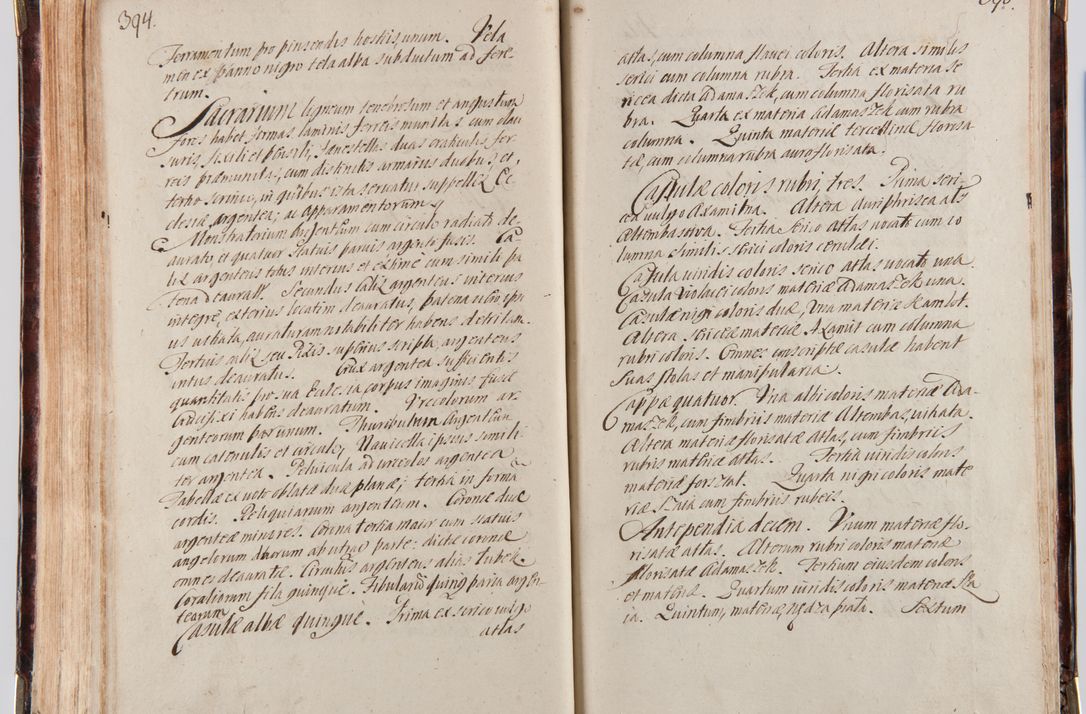 394.
Ferramentum pro pinsendis hostijs unum. Vela
men ex panno nigro tela alba subductum ad fere
trum.
Sacrarium ligneum tenebrosum et angustum
fores habet firmas laminis ferreis munitas cum clau
suris, fixili et pensili, fenestellas duas craticulis fer
reis præmunitas, cum distinctis armarijs duobus, et
tertio scrinio, in quibus ista servatur suppellex Ec
clesiæ argentea, ac apparamentorum.
Monstratorium argenteum cum circulo radiato de
aurato, et quatuor statuis parvis argento fusis. Ca
lix argenteus totus interius et exterius cum simili pa
tena deauratus. Secundus calix argenteus interius
integre, exterius locatim deauratus, patena
us aurata, auraturam notabiliter habens detritam.
Tertius calix seu Pixis superius scripta, argenteus
intus deauratus. Crux argentea sufficientis
quantitatis pro sua Ecclesia, corpus imaginis fusæ
Crucifixi habens deauratum. Urceolorum ar
genteorum par unum. Thuributum Argenteum
cum catenulis et circulo, Navicella ipsius simili
ter argentea. Pelvicula ad urceolos argentea
Tabellæ ex voto oblatæ duæ planæ; tertia in forma
cordis. Reliquiarium argenteum. Coronæ duæ
argenteæ minores. Corona tertia maior cum statuis
angelorum duorum ab utraque parte: dictæ coronæ
omnes deauratæ. Circulus argenteus alias
Coraliorum fila quinque. Fibularum quinque paria argen
tearum.
Casulæ albæ quinque. Prima ex serico vulgo
atlas
atlas, cum columna flavei coloris. Altera similis
serici cum columna rubra. Tertia ex materia se
ricea dicta Adamaszek, cum columna florisata ru
bra. Quarta ex materia Adamaszek cum rubra
columna. Quinta materiæ tercellinæ florisa
tæ cum columna rubra auro florisata.
Casulæ coloris rubri, tres. Prima seri
cea vulgo Axamitna. Altera auriphrisea als
Altembasowa. Tertia serico atlas vocato cum co
lumna similis serici coloris cerulæi.
Casula viridis coloris serico atlas vocato una.
Casula violacei coloris materiæ Adamaszek una.
Casulæ nigri coloris duæ, Una materiæ Hamlot.
Altera sericeæ materiæ Axamit cum columna
rubri coloris. Omnes conscriptæ casulæ habent
suas stolas et manipularia.
Cappæ quatuor. Una albi coloris materiæ Ada
maszek, cum fimbrijs materiæ Altembas, vihata.
Altera materiæ florisatæ atlas, cum fimbrijs
rubris materiæ atlas. Tertia viridis coloris
materiæ forsztat. Quarta nigri coloris mate
riæ Szaia cum fimbriis rubeis.
Antependia decem. Unum materiæ flo
risatæ atlas. Alterum rubri coloris materiæ
florisatæ Adamaszek. Tertium eiusdem coloris
et materiæ. Quartum viridis coloris materiæ Sza
ia. Quintum, materiæ, Sextum